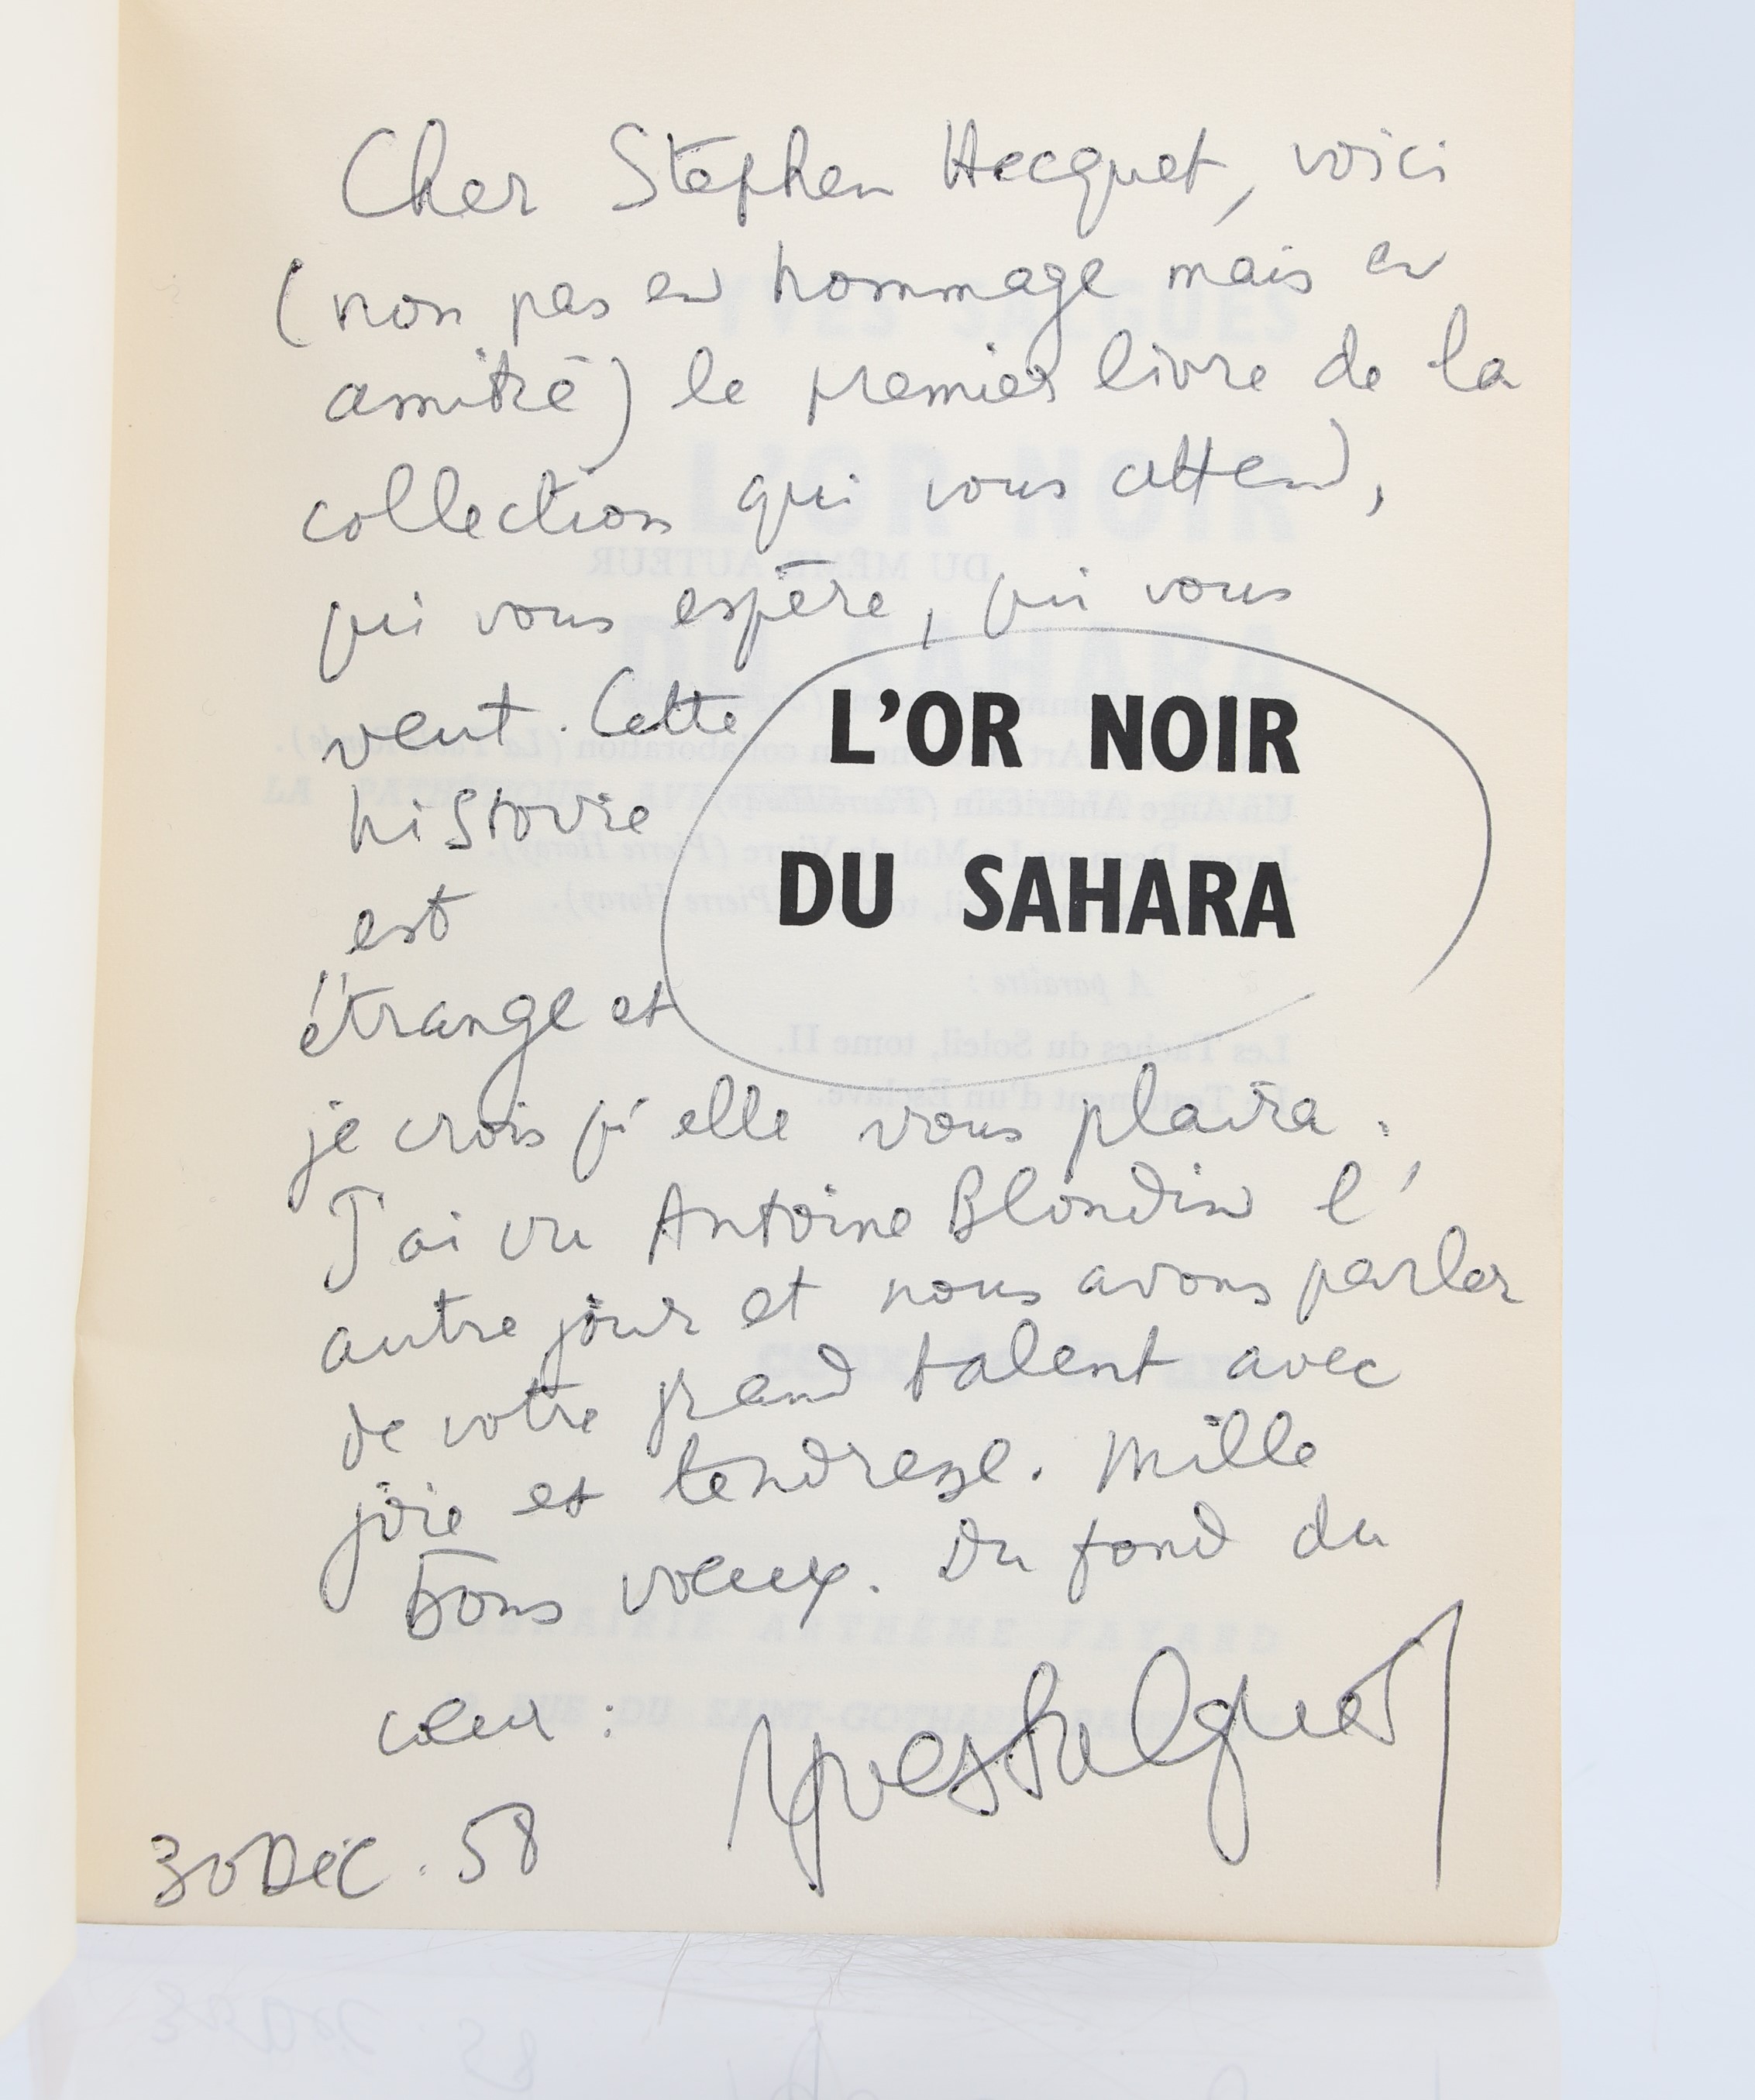 Cher Stephen Hecquet, voici
(non pas en hommage mais en
amitié) le premier livre de la
collection qui vous attend,
qui vous espère, qui vous
veut. Cette
histoire
est
étrange et
L'OR NOIR
DU SAHARA
je crois qu'elle vous plaira.
J'ai vu Antoine Blondin l'
autre jour et nous avons parler
de votre grand talent avec
joie et tendresse. Mille
bons voeux. Du fond du
coeur : Yves Salgues
30 Déc. 58